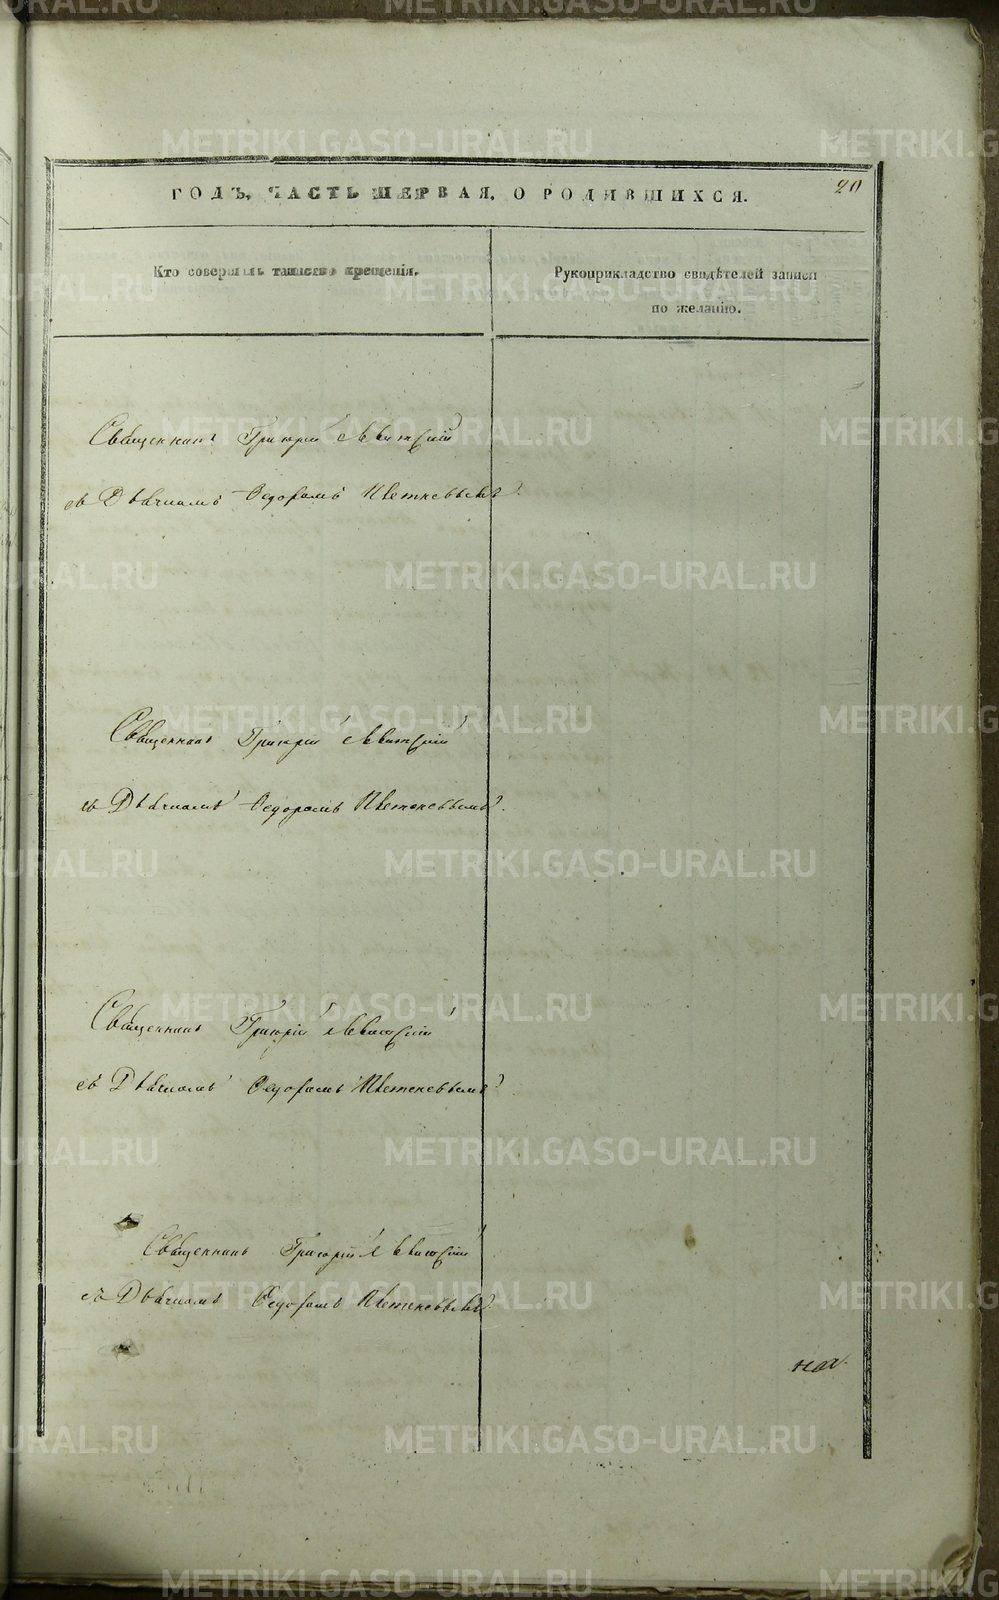 ГОДЪ, ЧАСТЬ ПЕРВАЯ, О РОДИВШИХСЯ.
20
Кто совершалъ таинство крещенія.
Рукоприкладство свидѣтелей записи
по желанію.
Священникъ Григорій Левитскій
съ Дьячкомъ Ѳедоромъ Цветковымъ.
Священникъ Григорій Левитскій
съ Дьячкомъ Ѳедоромъ Цветковымъ.
Священникъ Григорій Левитскій
съ Дьячкомъ Ѳедоромъ Цветковымъ
Священникъ Григорій Левитскій
съ Дьячкомъ Ѳедоромъ Цветковымъ.
METRIKI.GASO-URAL.RU